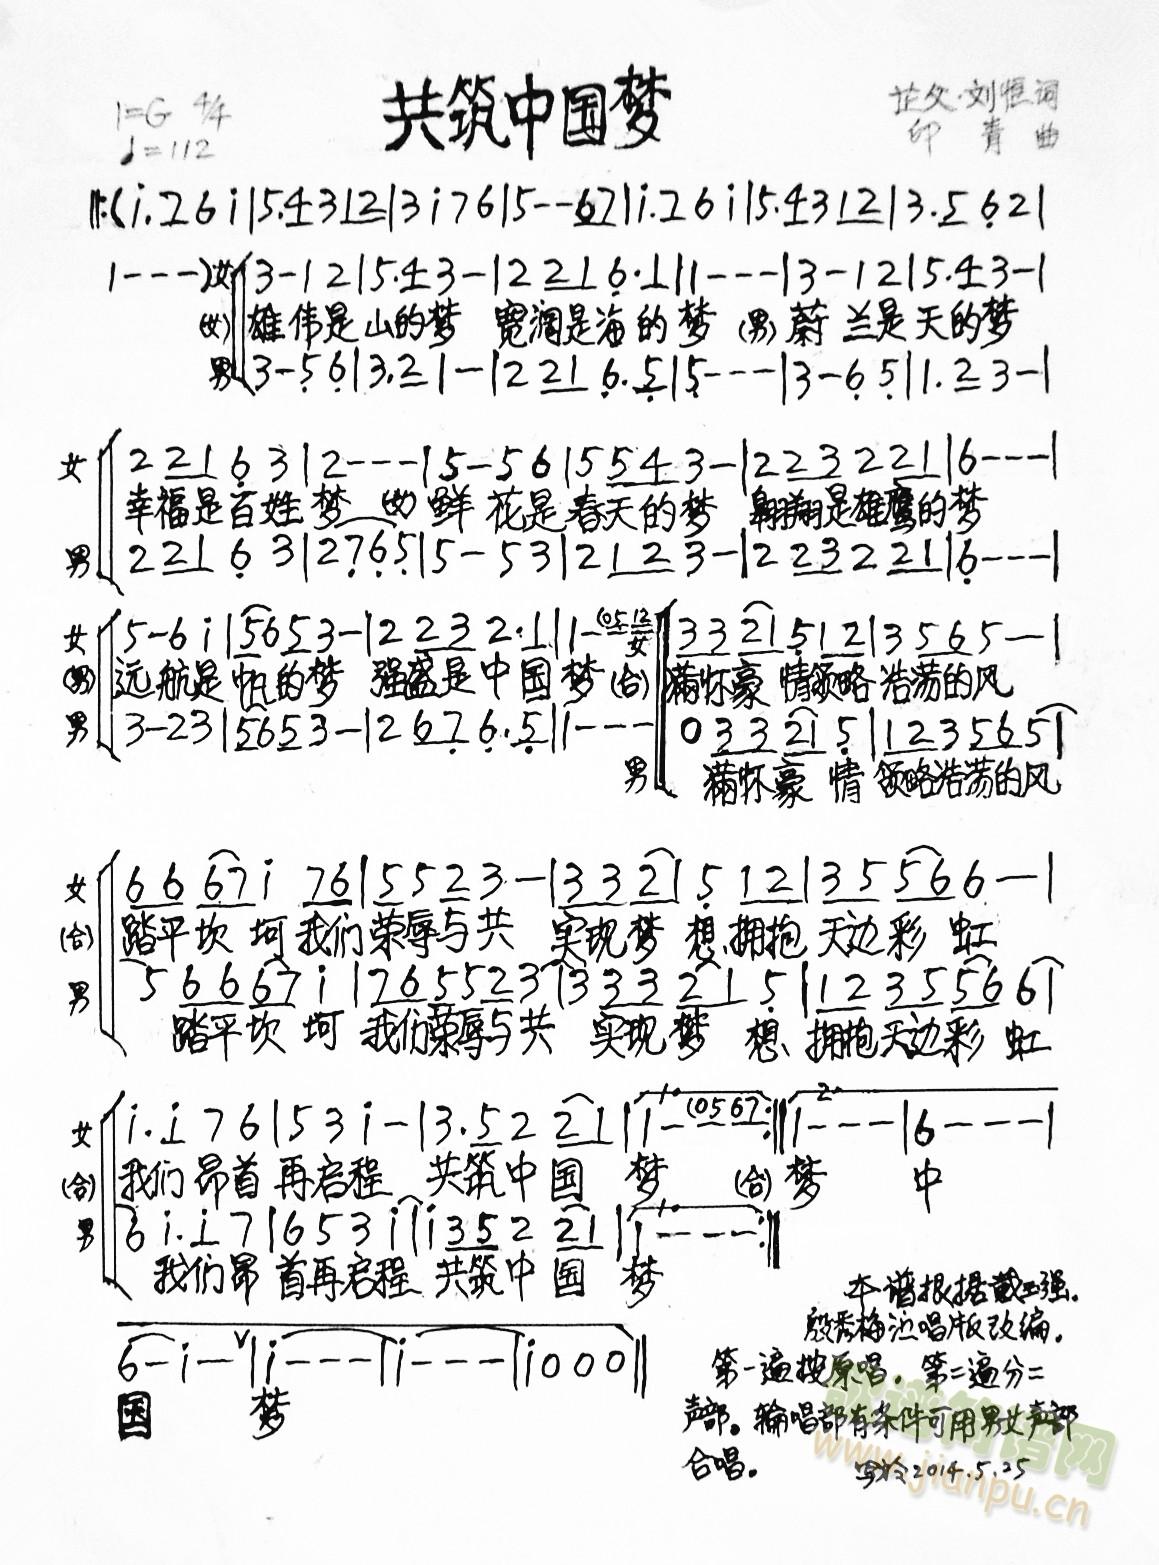 共筑中国梦
1=G 4/4
♩=112
芷父·刘恒词
印青曲
‖:(i.7 6 i|5.4 3 1 2|3 i 7 6|5--6 7|i.7 6 i|5.4 3 1 2|3.5 6 2|
1---)女 3-1 2|5.4 3-|2 2 1 6.1|1---|3-1 2|5.4 3-|
(女)雄伟是山的梦 宽阔是海的梦 (男)蔚兰是天的梦
男 3-5 6|3.2 1-|2 2 1 6.5|5---|3-6 5|1.2 3-|
女 2 2 1 6 3|2---|5-5 6|5 5 4 3-|2 2 3 2 2 1|6---|
幸福是百姓梦 (女)鲜花是春天的梦 翱翔是雄鹰的梦
男 2 2 1 6 3|2 7 6 5|5-5 3|2 1 2 3-|2 2 3 2 2 1|6---|
女 5-6 i|5 6 5 3-|2 2 3 2.1|1-(0 5 1 2 女 3 3 2 1 5 1 2|3 5 6 5--|
(男)远航是帆的梦 强盛是中国梦 (合)满怀豪情领略浩荡的风
男 3-2 3|5 6 5 3-|2 6 7 6.5|1---|男 0 3 3 2 1 5|1 2 3 5 6 5|
满怀豪情领略浩荡的风
女 6 6 6 7 i 7 6|5 5 2 3--|3 3 2 1 5 1 2|3 5 5 6 6--|
(合)踏平坎坷我们荣辱与共 实现梦想拥抱天边彩虹
男 5 6 6 6 7 i|7 6 5 5 2 3|3 3 3 2 1 5|1 2 3 5 5 6 6|
踏平坎坷 我们荣辱与共 实现梦想 拥抱天边彩虹
女 i.i 7 6|5 3 i-|3.5 2 2 1|1. 1-(0 5 6 7:‖2. 1---|6---|
(合)我们昂首再启程 共筑中国梦 (合)梦 中
男 6 i.i 7|6 5 3 i|i 3 5 2 2 1|1. 1---:‖
我们昂首再启程 共筑中国梦
6-i-∨|i---|i---|i 0 0 0‖
国 梦
本谱根据戴玉强.
殷秀梅泣唱版改编.
第一遍按原唱.第二遍分二
声部。输唱部有条件可用男女声部
合唱。
2014.5.25
歌谱简谱网
www.jianpu.cn